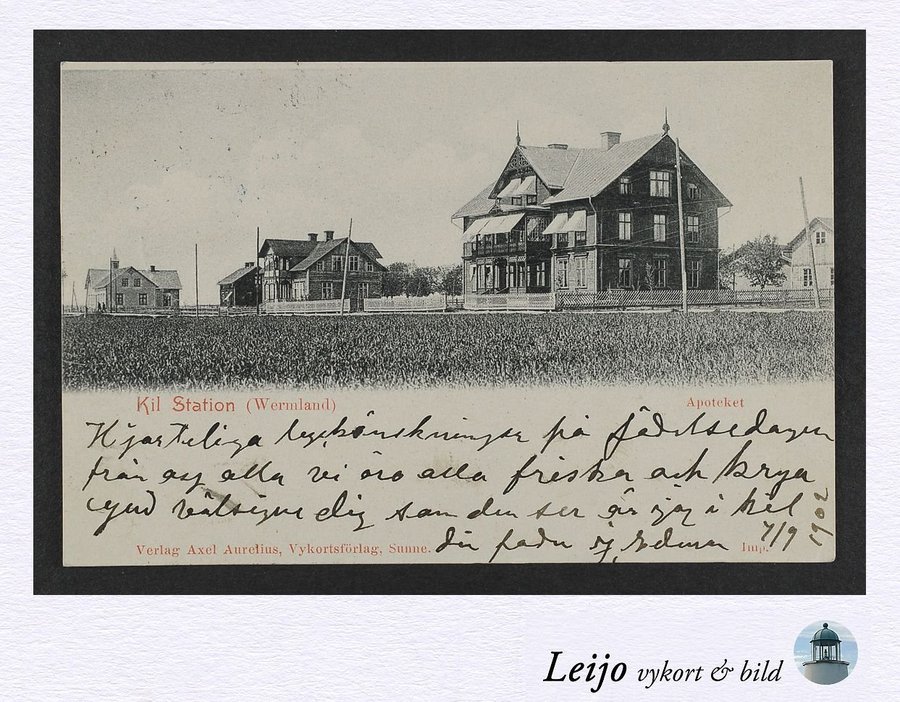 Kil Station (Wermland)
Apoteket
Hjärteliga lyckönskningar på födelsedagen
från oss alla vi äro alla friska och krya
Gud välsigne dig som du ser är jag i Kil
din fader
7/9 1902
Verlag Axel Aurelius, Vykortsförlag, Sunne.
Imp.
Leijo vykort & bild